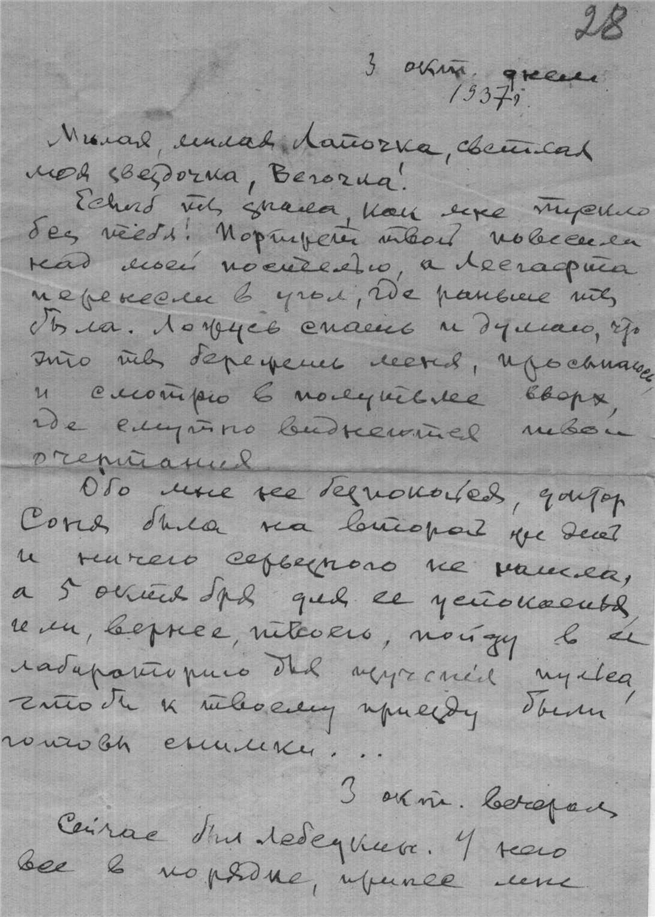 28
3 окт. днем
1937 г.
Милая, милая Лапочка, светлая
моя звездочка, Вегочка!
Еслиб ты знала, как мне тускло
без тебя! Портрет твой повесили
над моей постелью, а Лесгафта
перенесли в угол, где раньше ты
была. Ложусь спать и думаю, что
это ты бережешь меня, просыпаюсь,
и смотрю в полутьме вверх,
где смутно виднеются твои
очертания
Обо мне не безпокойся, доктор
Соня была на второй же день
и ничего серьезного не нашла,
а 5 октября для ее успокоенья,
или, вернее, твоего, пойду в ее
лабораторию для изучения пульса,
чтобы к твоему приезду были
готовы снимки...
3 окт. вечером
Сейчас был Лебедкин. У него
все в порядке, принес мне